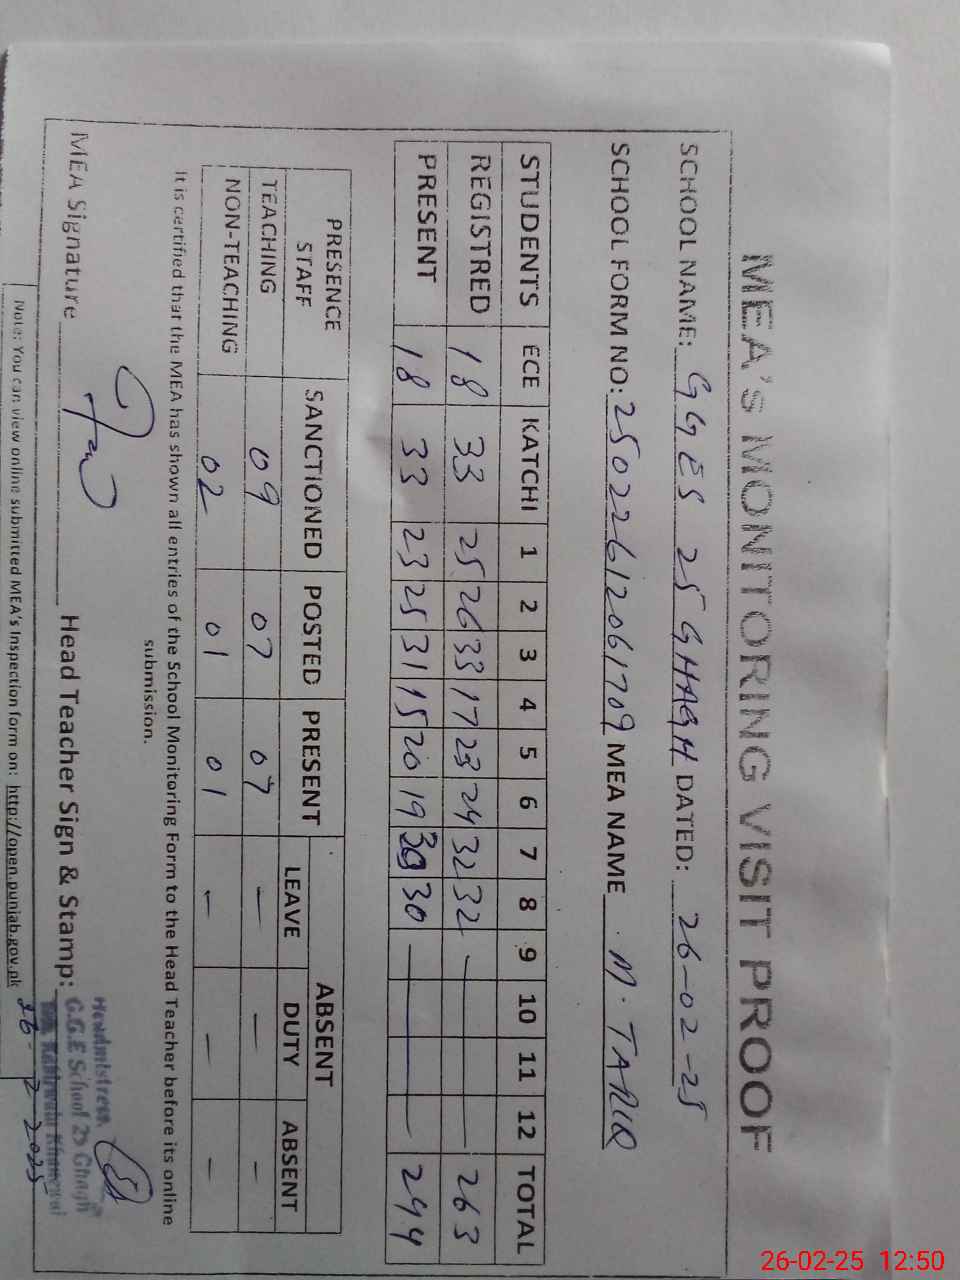 MEA'S MONITORING VISIT PROOF
SCHOOL NAME: GGES 25 GHAGH DATED: 26-02-25
SCHOOL FORM NO: 25022612061709 MEA NAME M. TARIQ
STUDENTS ECE KATCHI 1 2 3 4 5 6 7 8 9 10 11 12 TOTAL
REGISTRED 18 33 25 26 33 17 23 24 32 32 — 263
PRESENT 18 33 23 25 31 15 20 19 30 30 — 244
PRESENCE STAFF SANCTIONED POSTED PRESENT ABSENT
LEAVE DUTY ABSENT
TEACHING 09 07 07 — — —
NON-TEACHING 02 01 01 — — —
It is certified that the MEA has shown all entries of the School Monitoring Form to the Head Teacher before its online
submission.
MEA Signature Head Teacher Sign & Stamp:
Headmistress
G.G.E School 25 Ghagh
Khanewal
26-2-2025
Note: You can view online submitted MEA's Inspection form on: http://open.punjab.gov.pk
26-02-25 12:50